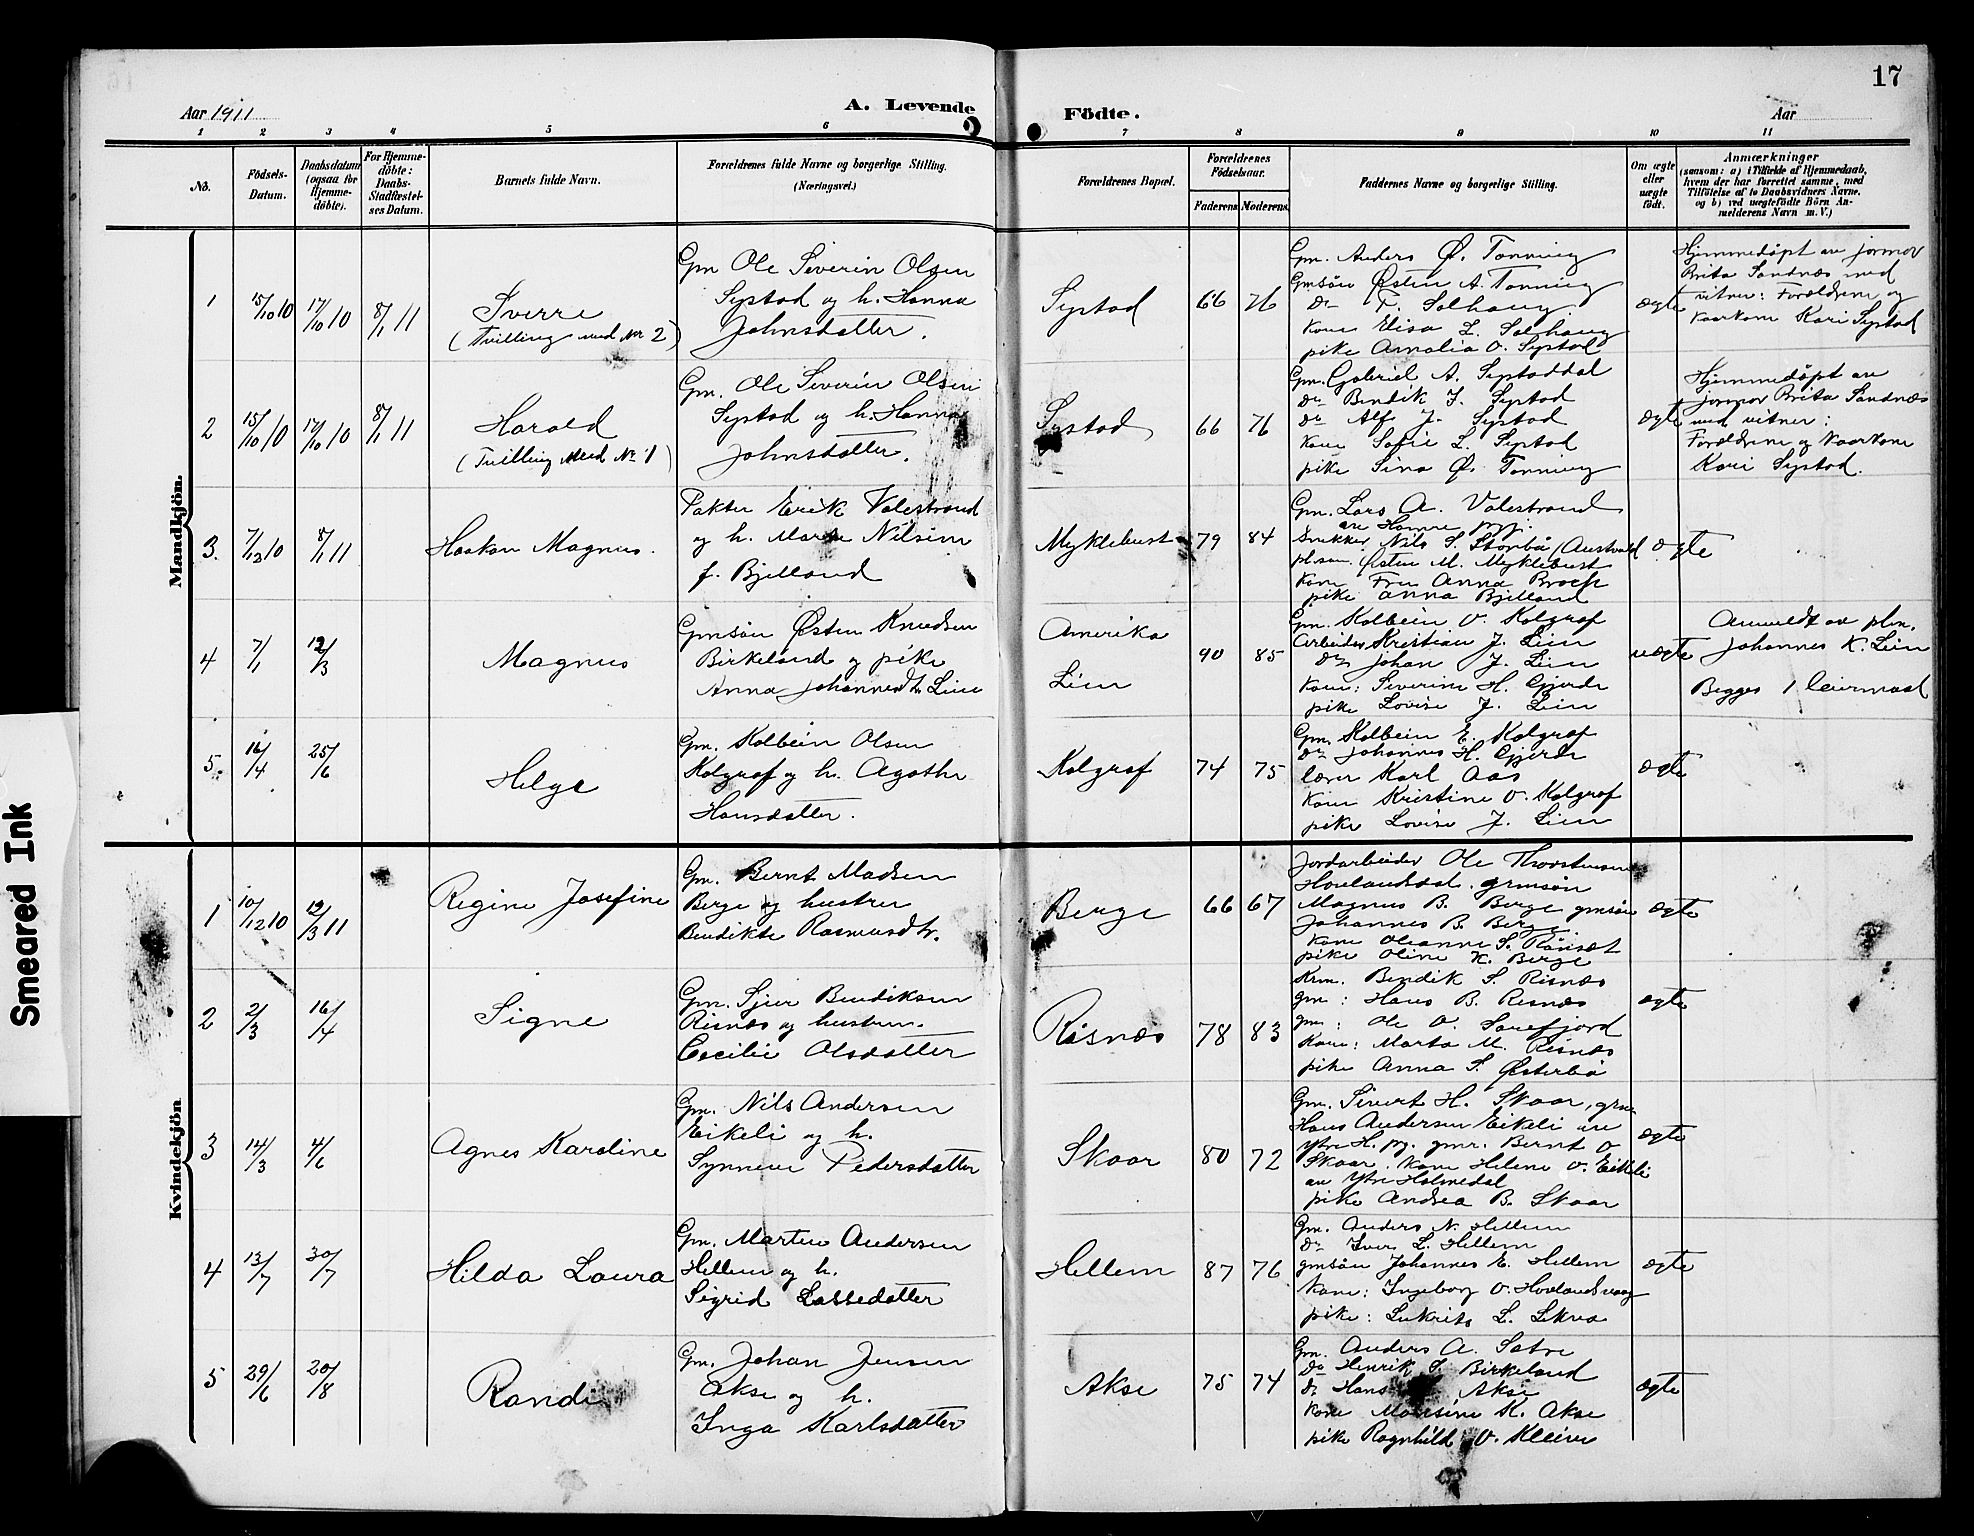 17
Aar 1911
A. Levende
Födte.
Aar
1 2 3 4 5 6 7 8 9 10 11
No.
Födsels-
Datum.
Daabsdatum
(ogsaa for
Hjemme-
döbte).
For Hjemme-
döbte:
Daabs-
Stadfæstel-
ses Datum.
Barnets fulde Navn.
Forældrenes fulde Navne og borgerlige Stilling.
(Næringsvei.)
Forældrenes Bopæl.
Forældrenes
Födselsaar.
Faderens
Moderens
Faddernes Navne og borgerlige Stilling.
Om ægte
eller
uægte
födt.
Anmærkninger
(saasom: a) i Tilfælde af Hjemmedaab,
hvem der har forrettet samme, med
Tilföielse af to Daabsvidners Navne,
og b) ved uægtefödte Börn An-
melderens Navn m. V.)
Mandkjön.
1
15/10 10
17/10 10
8/1 11
Sverre
(Tvilling med Nr 2)
Gm Ole Severin Olsen
Systad og h. Hanna
Johnsdatter.
Systad
66
76
Gm. Anders Ø. Tonning
Gmsøn Østen A. Tonning
Do T. Solhaug
Kone Elisa L. Solhaug
pike Amalia O. Systad
ægte
Hjemmedøpt av jormor
Brita Sandnæs med
vitner: Forældrene og
kaarkone Kari Systad
2
15/10 10
17/10 10
8/1 11
Harald
(Tvilling med Nr 1)
Gm. Ole Severin Olsen
Systad og h. Hanna
Johnsdatter.
Systad
66
76
Gm. Gabriel A. Systaddal
Do Bendik J. Systad
Do Alf J. Systad
Kone Sofie L. Systad
pike Sina Ø. Tonning
ægte
Hjemmedøpt av
jormor Brita Sandnæs
med vitner:
Forældrene og kaarkone
Kari Systad.
3.
7/12 10
8/1 11
Haakon Magnus.
Pakter Erik Valestrand
og h. Marie Nilsine
f. Bjelland
Myklebust
79
84
Gm. Lars A. Valestrand
av Hamre pgj.
Snikker Nils S. Storbø (Austvold
Østen M. Myklebust
Kone Fru Anna Broch
pike Anna Bjelland
ægte
4
7/1
12/3
Magnus
Gmsøn Østen Knudsen
Birkeland og pike
Anna Johannesdtr Lien
Amerika
Lien
90
85
Gm. Kolbein O. Kolgrof
Arbeider Kristian J. Lien
Do Johan J. Lien
Kone: Severine H. Gjerde
pike Lovise J. Lien
uægte
Anmeldt av plm.
Johannes K. Lien
Begges 1 leiermaal
5.
16/4
25/6
Helge
Gm. Kolbein Olsen
Kolgrof og h. Agathe
Hansdatter.
Kolgrof
74
75
Gm. Kolbein E. Kolgrof
Do Johannes H. Gjerde
lærer Karl Aas
Kone Kristine O. Kolgrof
pike Lovise J. Lien
ægte
Kvindekjön
1
10/12 10
12/3 11
Regine Josefine
Gm. Bernt Madsen
Berge og hustru
Bendikte Rasmusdtr.
Berge
66
67
Jordarbeider Ole Thorstensen
Hovlandsdal. grmsøn
Magnus B. Berge gmsøn
Johannes B. Berge.
Kone Olianne S.
pike Oline K. Berge
ægte
2
2/3
16/4
Signe
Gm. Sjur Bendiksen
Risnæs og hustru.
Cecilie Olsdatter
Risnæs
78
83
Krm. Bendik S. Risnæs
gm: Hans B. Risnæs
gm: Ole O. Sørefjord
Kone: Marta M. Risnæs
pike Anna S. Østerbø
ægte
3
14/3
4/6
Agnes Karoline
Gm. Nils Andersen
Eikeli og h.
Synneve Pedersdatter
Skaar
80
72
Gm. Sivert H. Skaar, grm
Hans Andersen Eikeli av
Ytre H. pg. gmr. Bernt O
Skaar. Kone Helene O. Eikeli
av Ytre Holmedal
pike Andrea B. Skaar
ægte
4
13/7
30/7
Hilda Laura
Gm. Martin Andersen
Hellem og h.
Sigrid Lassedatter
Hellem
87
76
Gm. Anders N. Hellem
Do Iver L. Hellem
gmsøn Johannes E. Hellem
Kone: Ingeborg O. Hovlandsvaag
pike: Lukrits L. Lekva
ægte
5
29/6
20/8
Randi
Gm. Johan Jensen
Akse og h.
Inga Karlsdatter
Akse
75
74
Gm. Anders A. Sætre
Do Henrik S. Birkeland
Do Hans Akse
Kone Monsine K. Akse
pike Ragnhild O. Kleiven
ægte
Smeared Ink